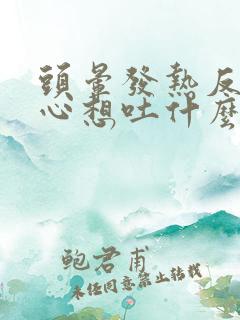 頭暈發熱反
心想吐什麼
鮑君甫
未经同意禁止转载